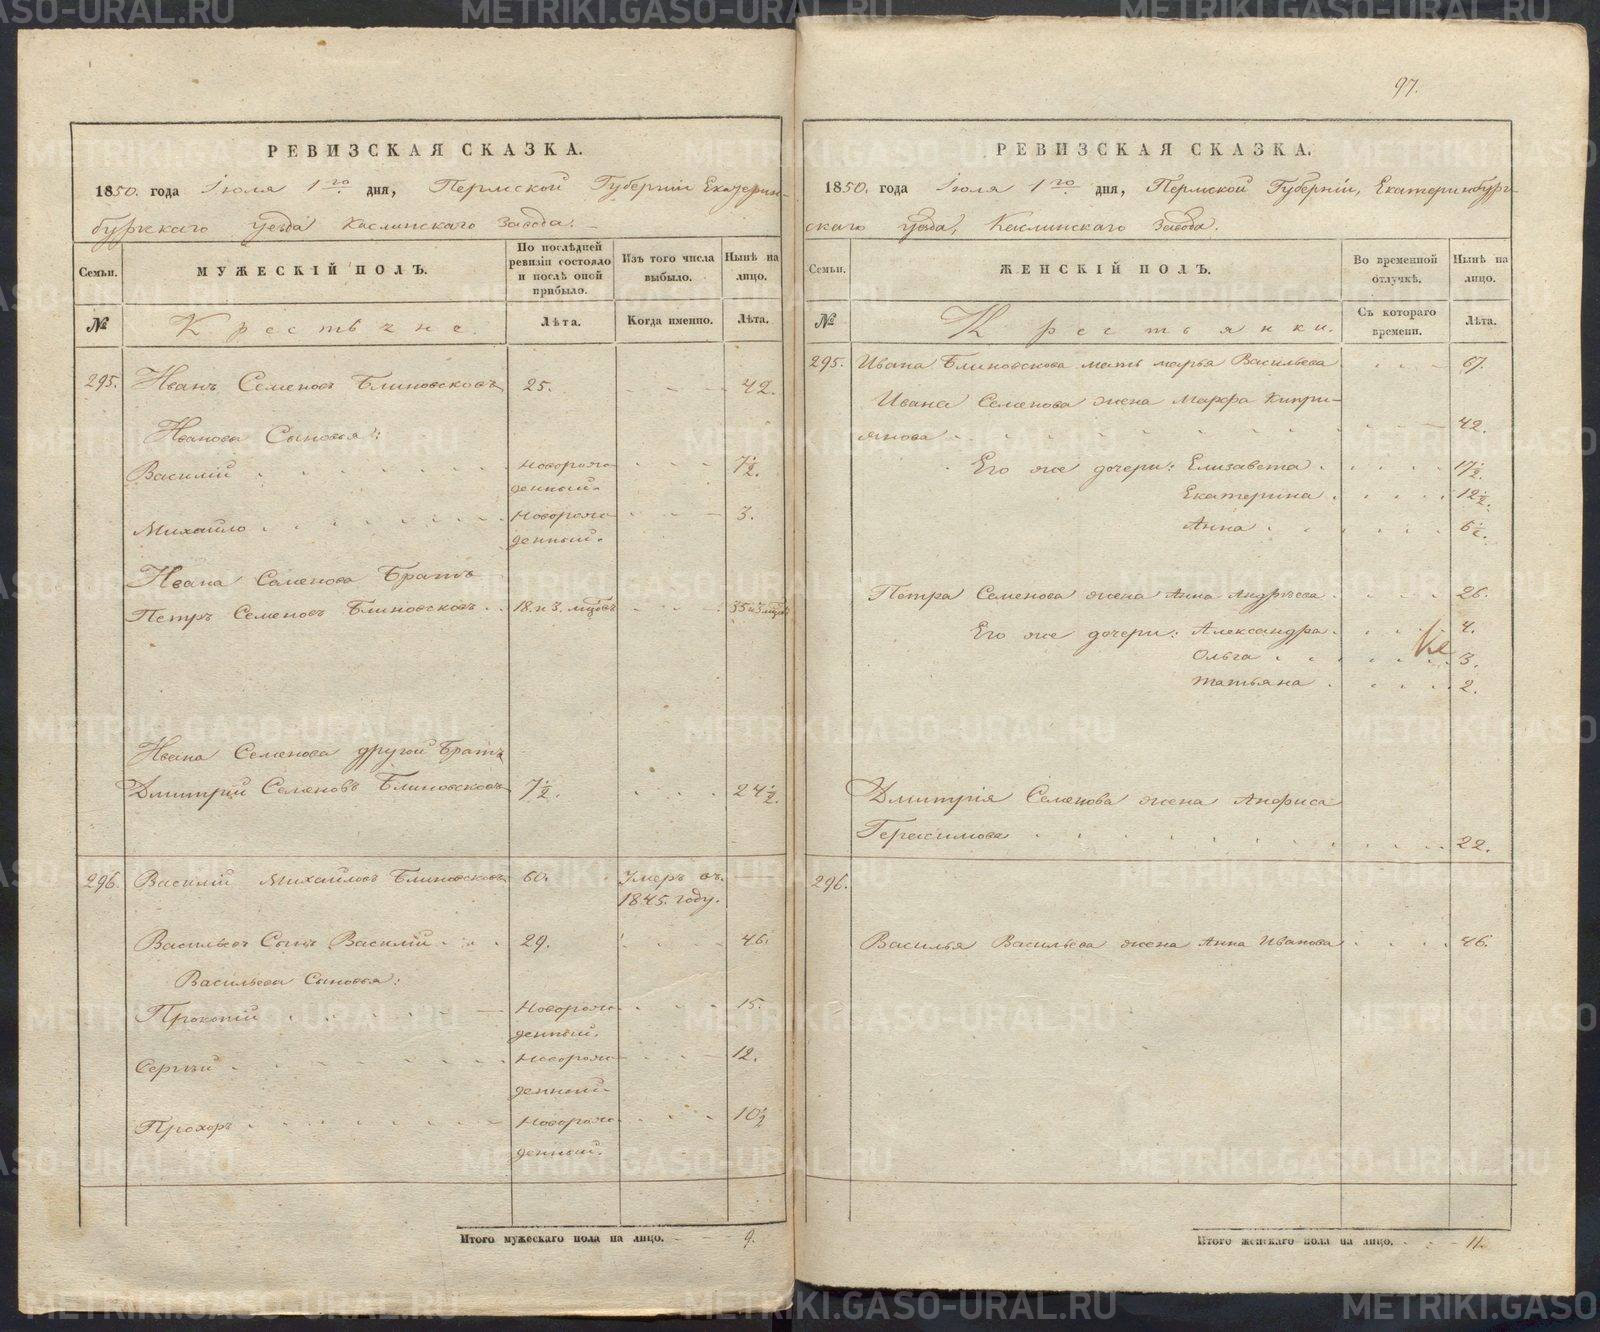 97.
РЕВИЗСКАЯ СКАЗКА.
1850. года Іюля 1го дня, Пермской Губерніи Екатерин-
бургскаго уезда Каслинскаго завода.
Семьи. МУЖЕСКІЙ ПОЛЪ. По послѣдней ревизіи состояло и послѣ оной прибыло. Изъ того числа выбыло. Нынѣ на лицо.
№ Крестьяне. Лѣта. Когда именно. Лѣта.
295. Иванъ Семеновъ Блиновсковъ 25. 42.
Ивановы Сыновья:
Василій новорож- 7½.
денный.
Михайло новорож- 3.
денный.
Ивана Семенова Братъ
Петръ Семеновъ Блиновсковъ 18. и 3. мцовъ 35 и 3 мцов
Ивана Семенова другой Братъ
Дмитрій Семеновъ Блиновсковъ 7½. 24½.
296. Василій Михайловъ Блиновсковъ 60. Умеръ въ
1845. году.
Васильевъ Сынъ Василій 29. 46.
Васильева Сыновья:
Прокопій Новорож- 15.
денный.
Сергѣй Новорож- 12.
денный.
Прохоръ Новорож- 10½
денный.
Итого мужескаго пола на лицо. 9.
РЕВИЗСКАЯ СКАЗКА.
1850. года Іюля 1го дня, Пермской Губерніи, Екатеринбург-
скаго уезда, Каслинскаго завода.
Семьи. ЖЕНСКІЙ ПОЛЪ. Во временной отлучкѣ. Нынѣ на лицо.
№ Крестьянки. Съ котораго времени. Лѣта.
295. Ивана Блиновскова мать марья Васильева 67.
Ивана Семенова жена Марфа Кипри-
янова 42.
Его же дочери: Елизавета 17½.
Екатерина 12½.
Анна 6½.
Петра Семенова жена Анна Андрѣева 26.
Его же дочери: Александра 4.
Ольга 3.
татьяна 2.
Дмитрія Семенова жена Анфиса
Герасимова 22.
296.
Василья Васильева жена Анна Иванова 46.
Итого женскаго пола на лицо. 11.
METRIKI.GASO-URAL.RU